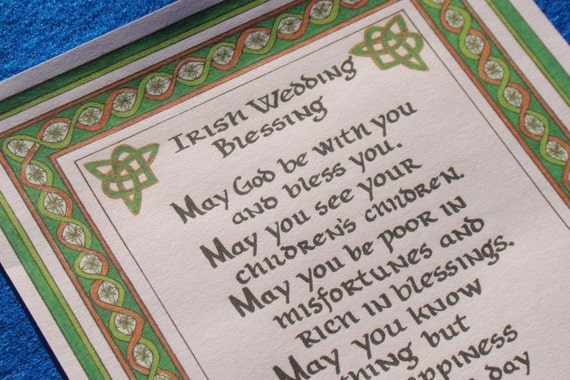 Irish Wedding
Blessing
May God be with you
and bless you.
May you see your
children's children.
May you be poor in
misfortunes and
rich in blessings.
May you know
thing but
ppiness
day